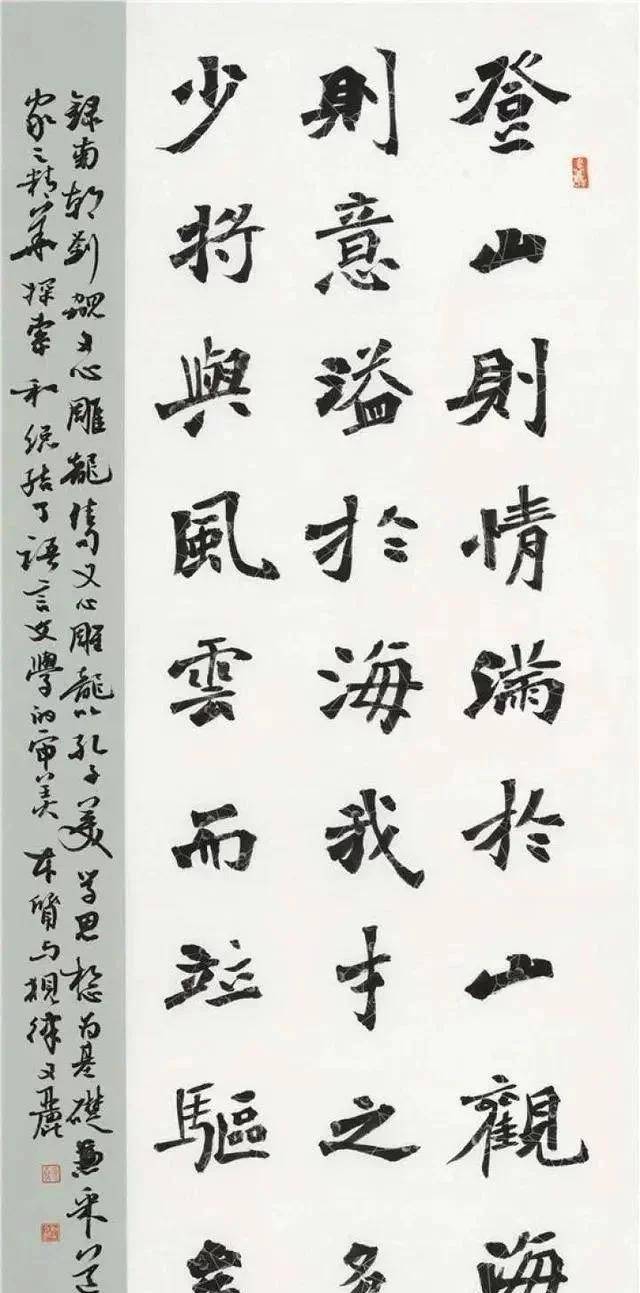 登山則情滿於山觀海
則意溢於海我才之多
少將與風雲而並驅矣
錄南朝劉勰文心雕龍佳句文心雕龍以孔子美學思想为基礎兼采道
家之精華探索和總結了語言文學的审美本質与規律文麗